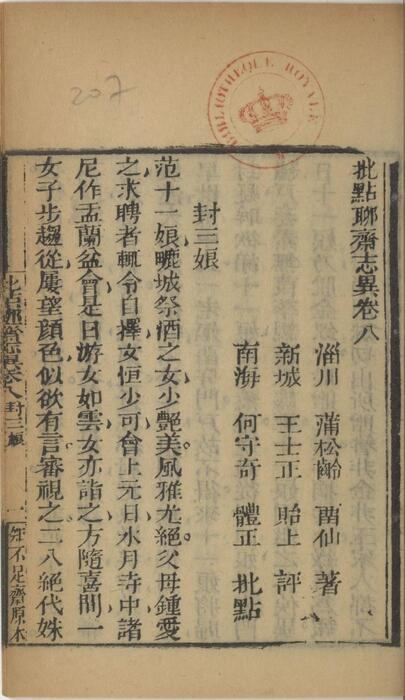 207
BIBLIOTHEQUE ROYALE
批點聊齋志異卷八
淄川 蒲松齡 畱仙 著
新城 王士正 貽上 評
南海 何守奇 體正 批點
封三娘
范十一娘𤲞城祭酒之女少艷美風雅尤絕父母鍾愛
之求聘者輒令自擇女恒少可會上元日水月寺中諸
尼作盂蘭盆會是日游女如雲女亦詣之方隨喜間一
女子步趨從屢望顏色似欲有言審視之二八絕代姝
批點聊齋志異卷八 封三娘 一 知不足齋原本